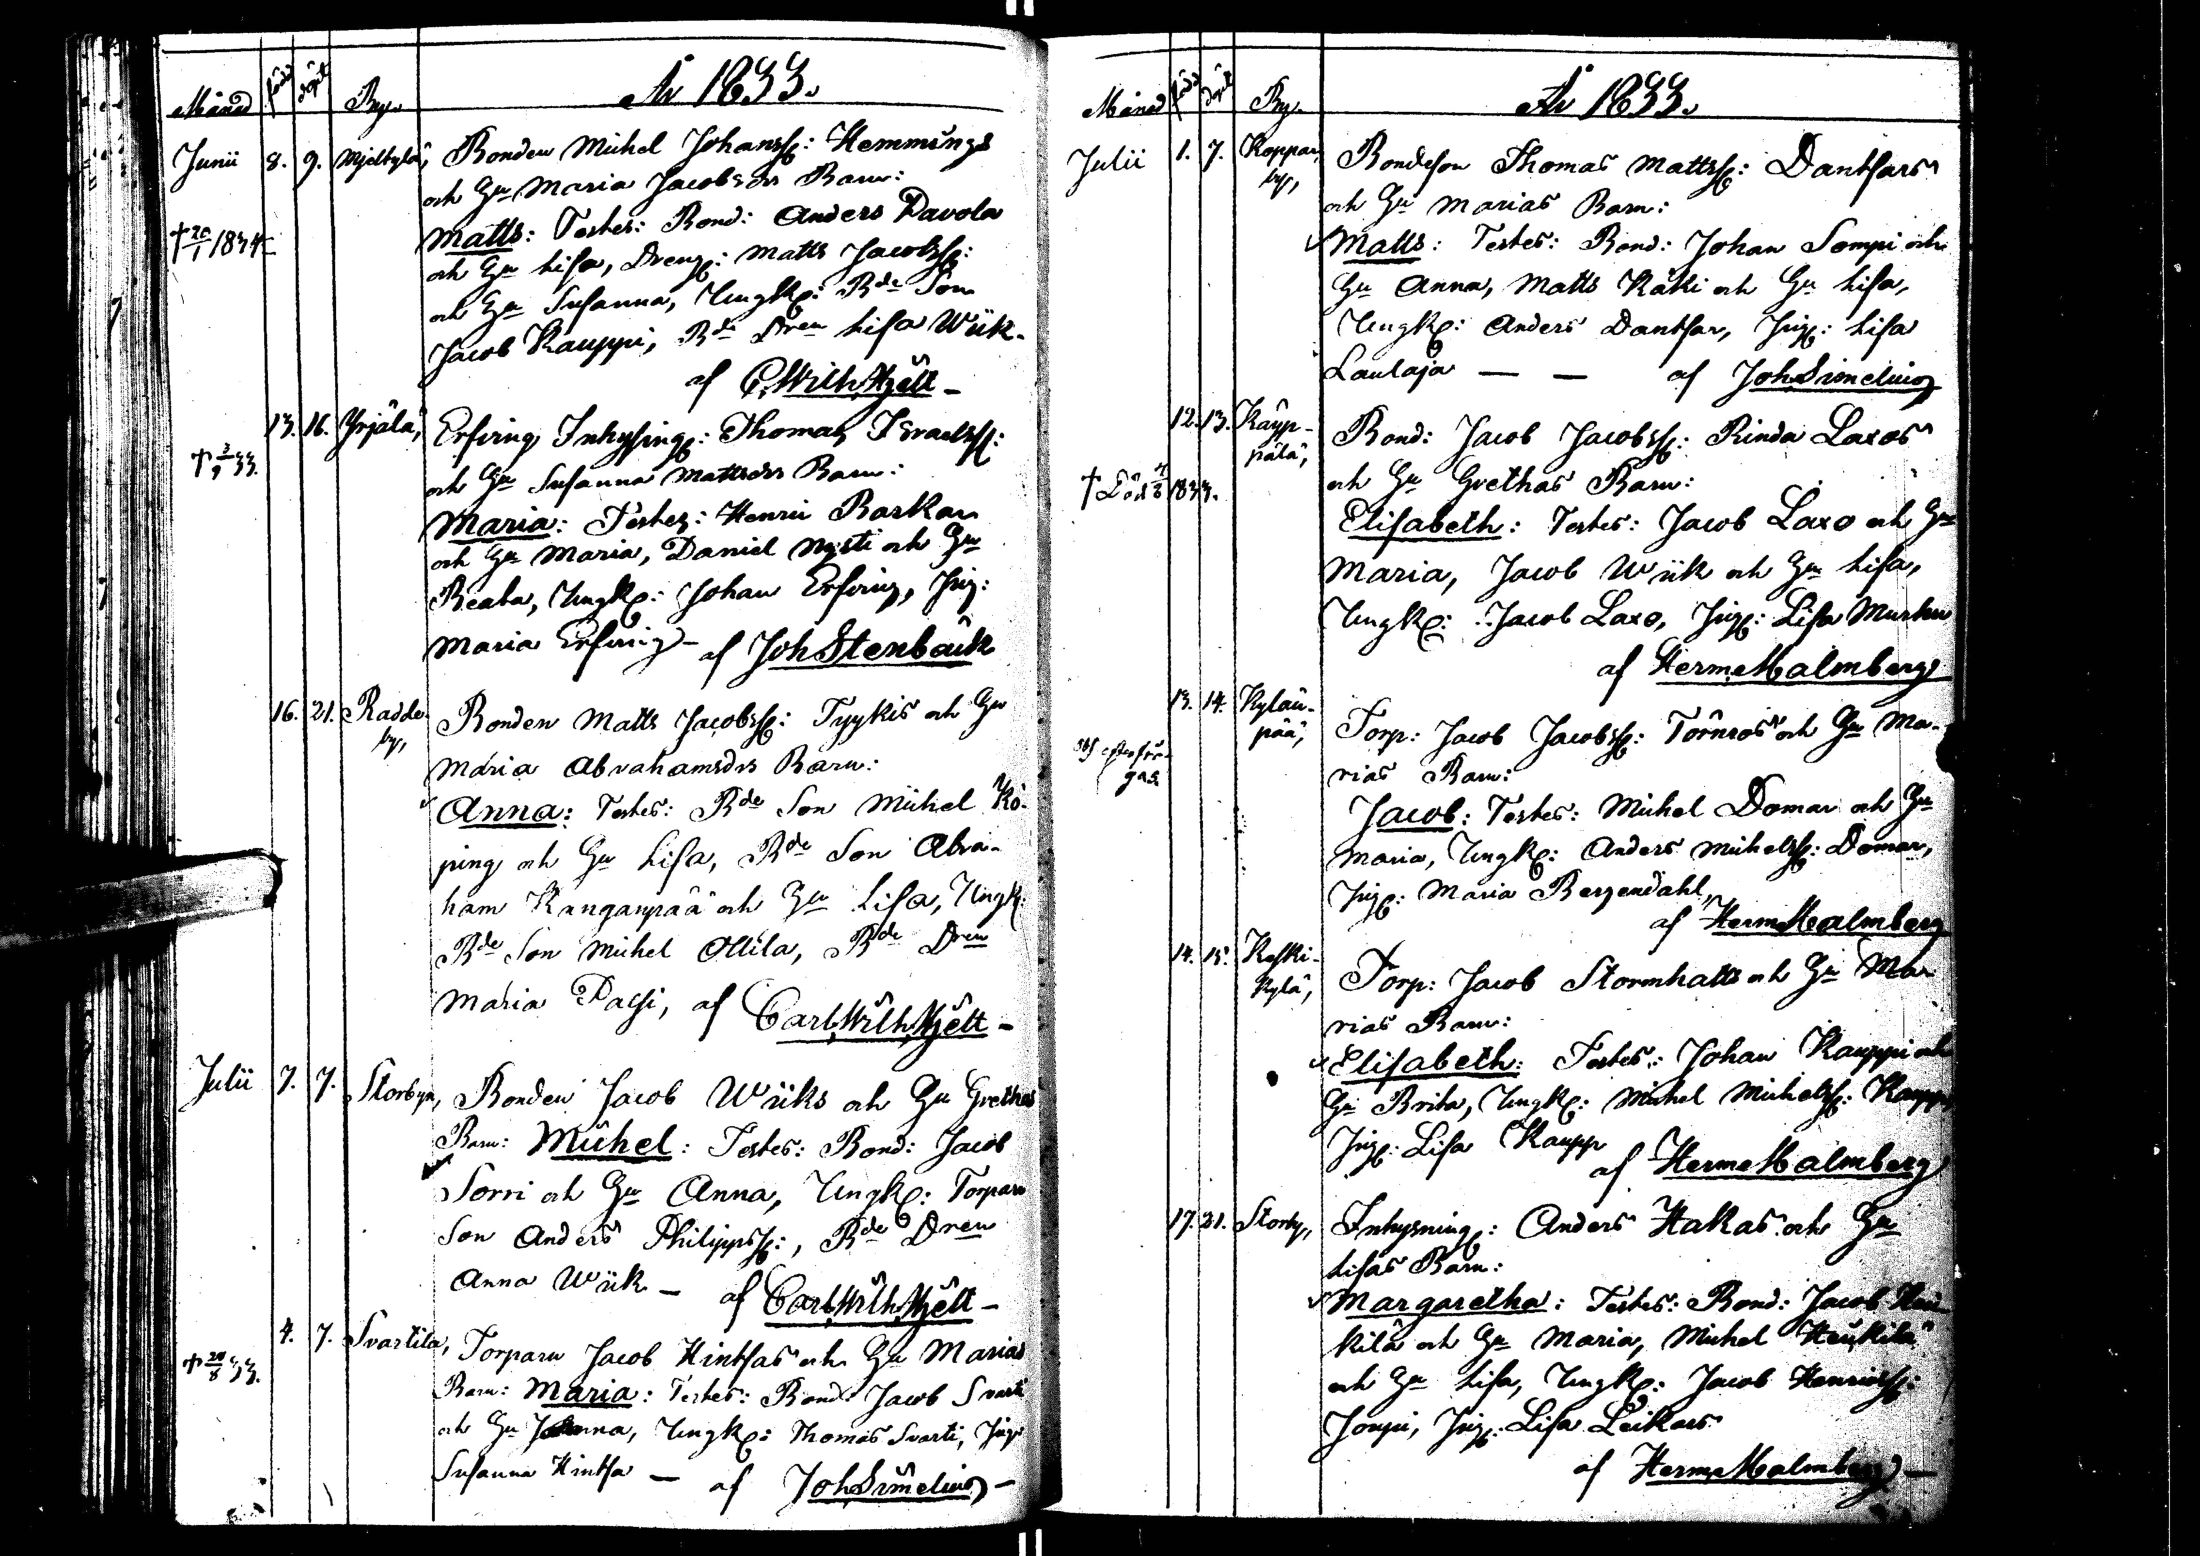 År 1833.
Månad född döpt By.
Junii 8. 9. Mjelkylä, Bonden Michel Johanss: Hemmings
och Hu Maria Jacobsdrs Barn:
Matts: Testes: Bond: Anders Pavola
† 20/1 1834
och Hu Lisa, Dreng: Matts Jacobss:
och Hu Susanna, Ungk: Bde Son
Jacob Kauppi, Bde Dren Lisa Wiik.
af C. Wilh. Hjelt
13. 16. Yrjälä, Erfving Inhysing: Thomas Israelss:
† 3/9 33.
och Hu Susanna Mattsdrs Barn:
Maria: Testes: Henric Barkar
och Hu Maria, Daniel Nysti och Hu
Beata, Ungk: Johan Erfving, Pig:
Maria Erfving af Joh Stenbäck
16. 21. Raddeby, Bonden Matts Jacobss: Tyykis och Hu
Maria Abrahamsdrs Barn:
Anna: Testes: Bde Son Michel Kö-
ping och Hu Lisa, Bde Son Abra-
ham Kanganpää och Hu Lisa, Ungk:
Bde Son Michel Ollila, Bde Dren
Maria Passi, af Carl Wilh. Hjelt
Julii 7. 7. Storbyn, Bonden Jacob Wiiks och Hu Grethas
Barn: Michel: Testes: Bond: Jacob
Sorri och Hu Anna, Ungk: Torpare
Son Anders Philipss:, Bde Dren
Anna Wiik af Carl Wilh. Hjelt
4. 7. Svartila, Torparn Jacob Hintsas och Hu Marias
† 20/8 33.
Barn: Maria: Testes: Bond: Jacob Svarti
och Hu Johanna, Ungk: Thomas Svarti, Pig:
Susanna Hintsa af Joh Simelius
År 1833.
Månad född döpt By.
Julii 1. 7. Kopparby, Bondeson Thomas Mattss: Dantsars
och Hu Marias Barn:
Matts: Testes: Bond: Johan Sompi och
Hu Anna, Matts Käki och Hu Lisa,
Ungk: Anders Dantsar, Pig: Lisa
Laulaja af Joh Simelius
12. 13. Käyppälä, Bond: Jacob Jacobss: Rinda Laxos
och Hu Grethas Barn:
† Död 4/8 1833.
Elisabeth: Testes: Jacob Laxo och Hu
Maria, Jacob Wiik och Hu Lisa,
Ungk: Jacob Laxo, Pig: Lisa Murken
af Herm. Malmberg
13. 14. Kylänpää, Torp: Jacob Jacobss: Törnros och Hu Ma-
obs efterfrågas
rias Barn:
Jacob: Testes: Michel Domar och Hu
Maria, Ungk: Anders Michelss: Domar,
Pig: Maria Bergendahl,
af Herm Malmberg
14. 15. Keskikylä, Torp: Jacob Stormhatts och Hu Ma-
rias Barn:
Elisabeth: Testes: Johan Kauppi och
Hu Brita, Ungk: Michel Michelss: Kauppi
Pig: Lisa Kaupp
af Herm Malmberg
17. 21. Storby, Inhysning: Anders Hakas och Hu
Lisas Barn:
Margaretha: Testes: Bond: Jacob Hei-
kilä och Hu Maria, Michel Heikilä
och Hu Lisa, Ungk: Jacob Henricss:
Joupi, Pig: Lisa Leikars
af Herm Malmberg